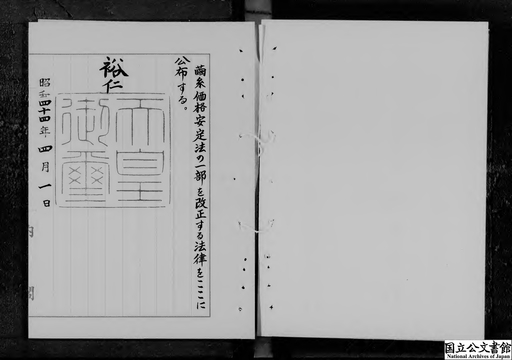 繭糸価格安定法の一部を改正する法律をここに
公布する。
裕仁
天皇
御璽
昭和四十四年四月一日
内閣
国立公文書館
National Archives of Japan